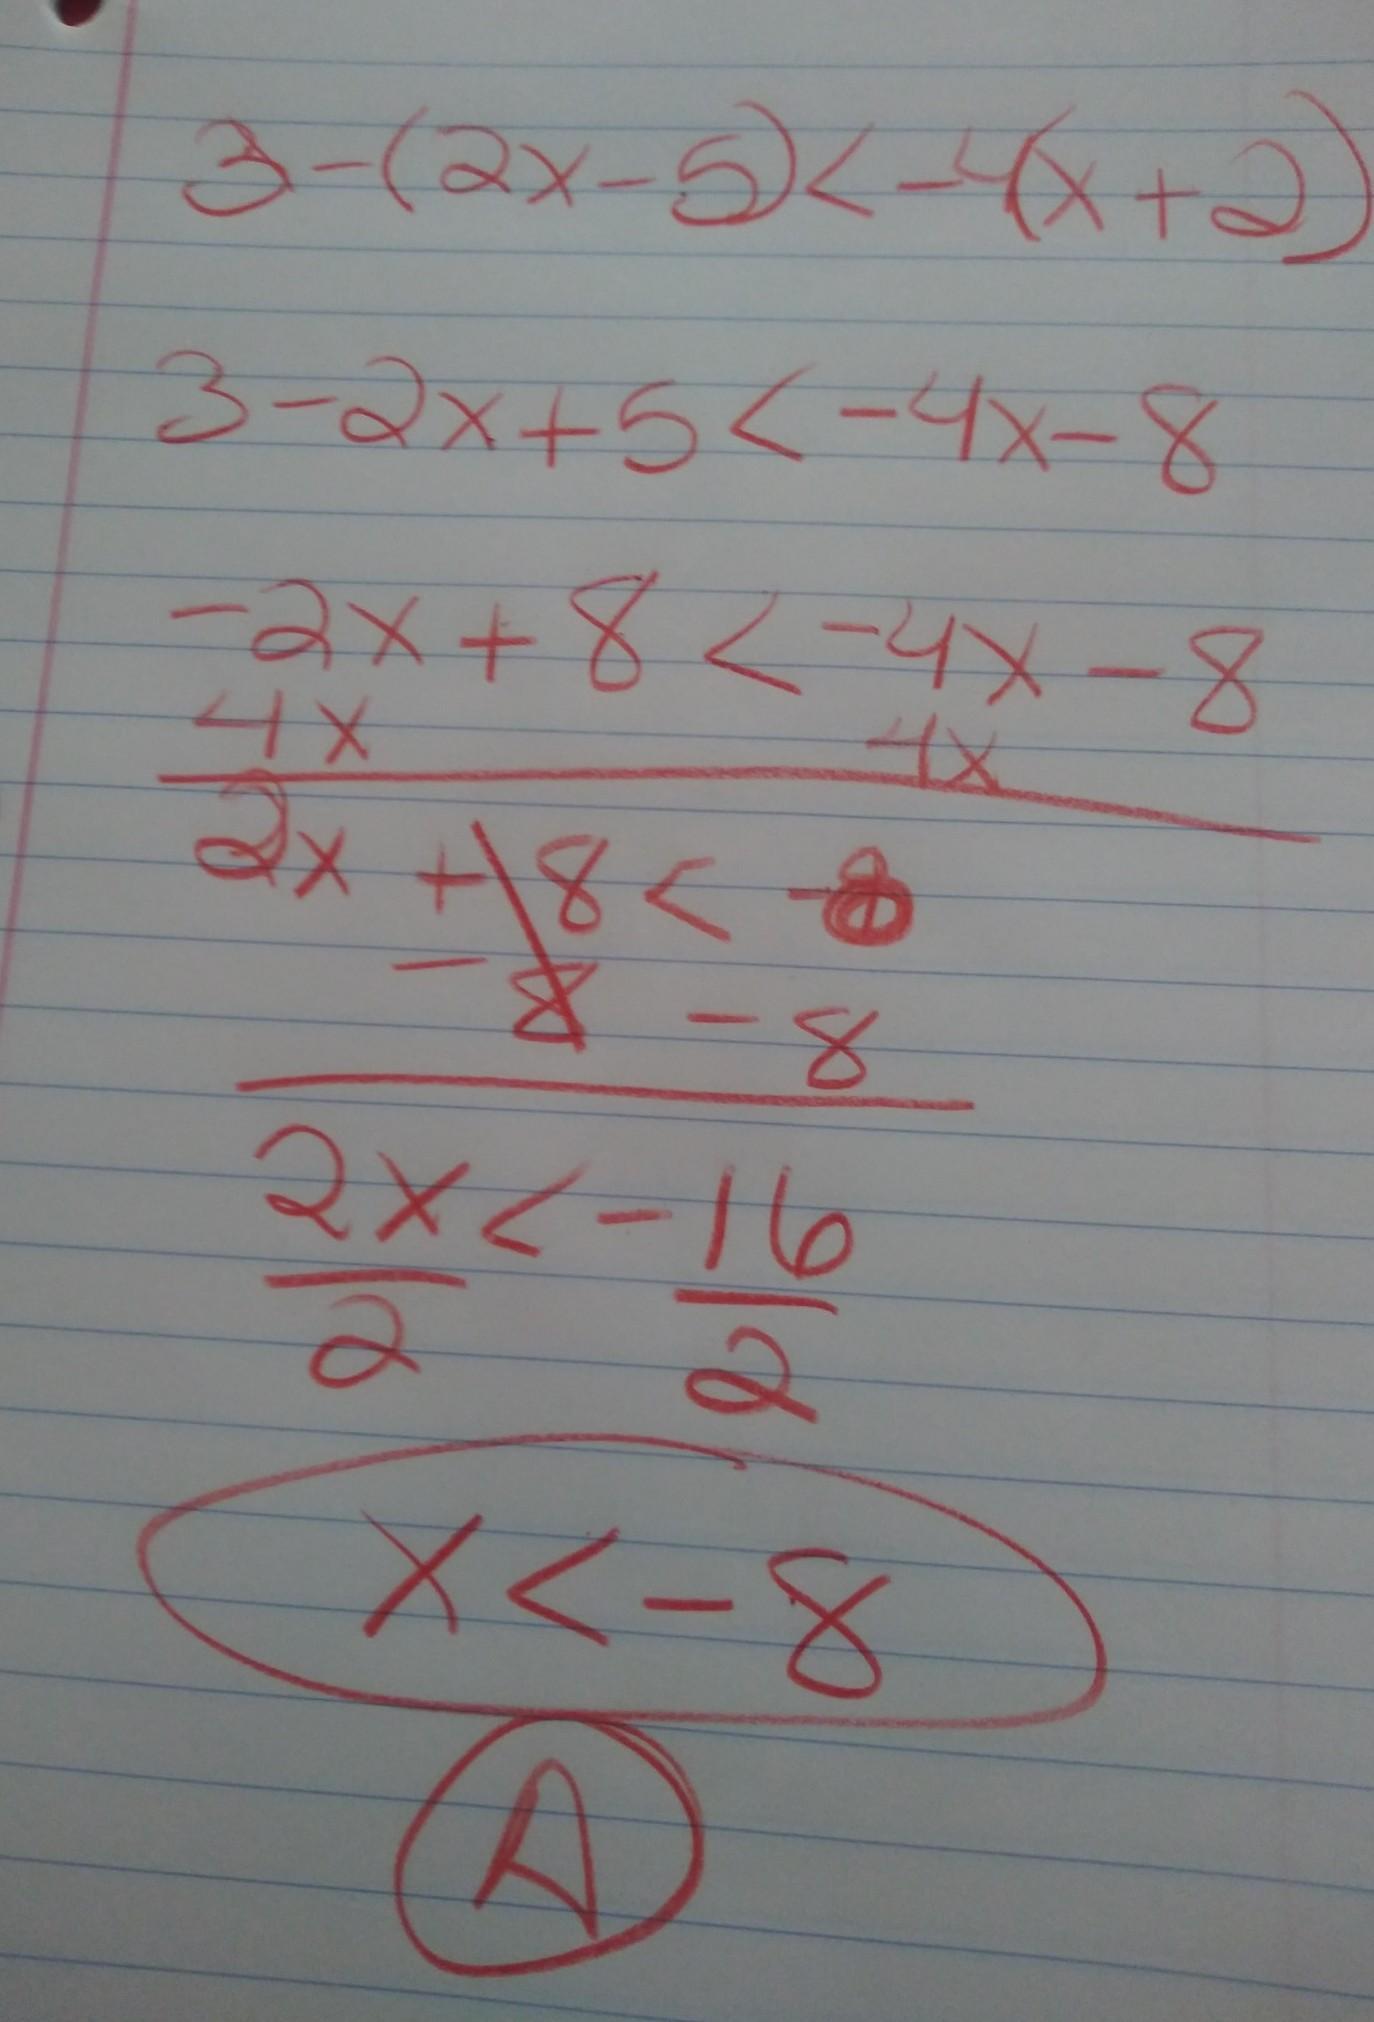 3-(2x-5)<-4(x+2)
3-2x+5<-4x-8
-2x+8<-4x-8
4x 4x
2x+8<-8
-8 -8
2x<-16
2 2
x<-8
A